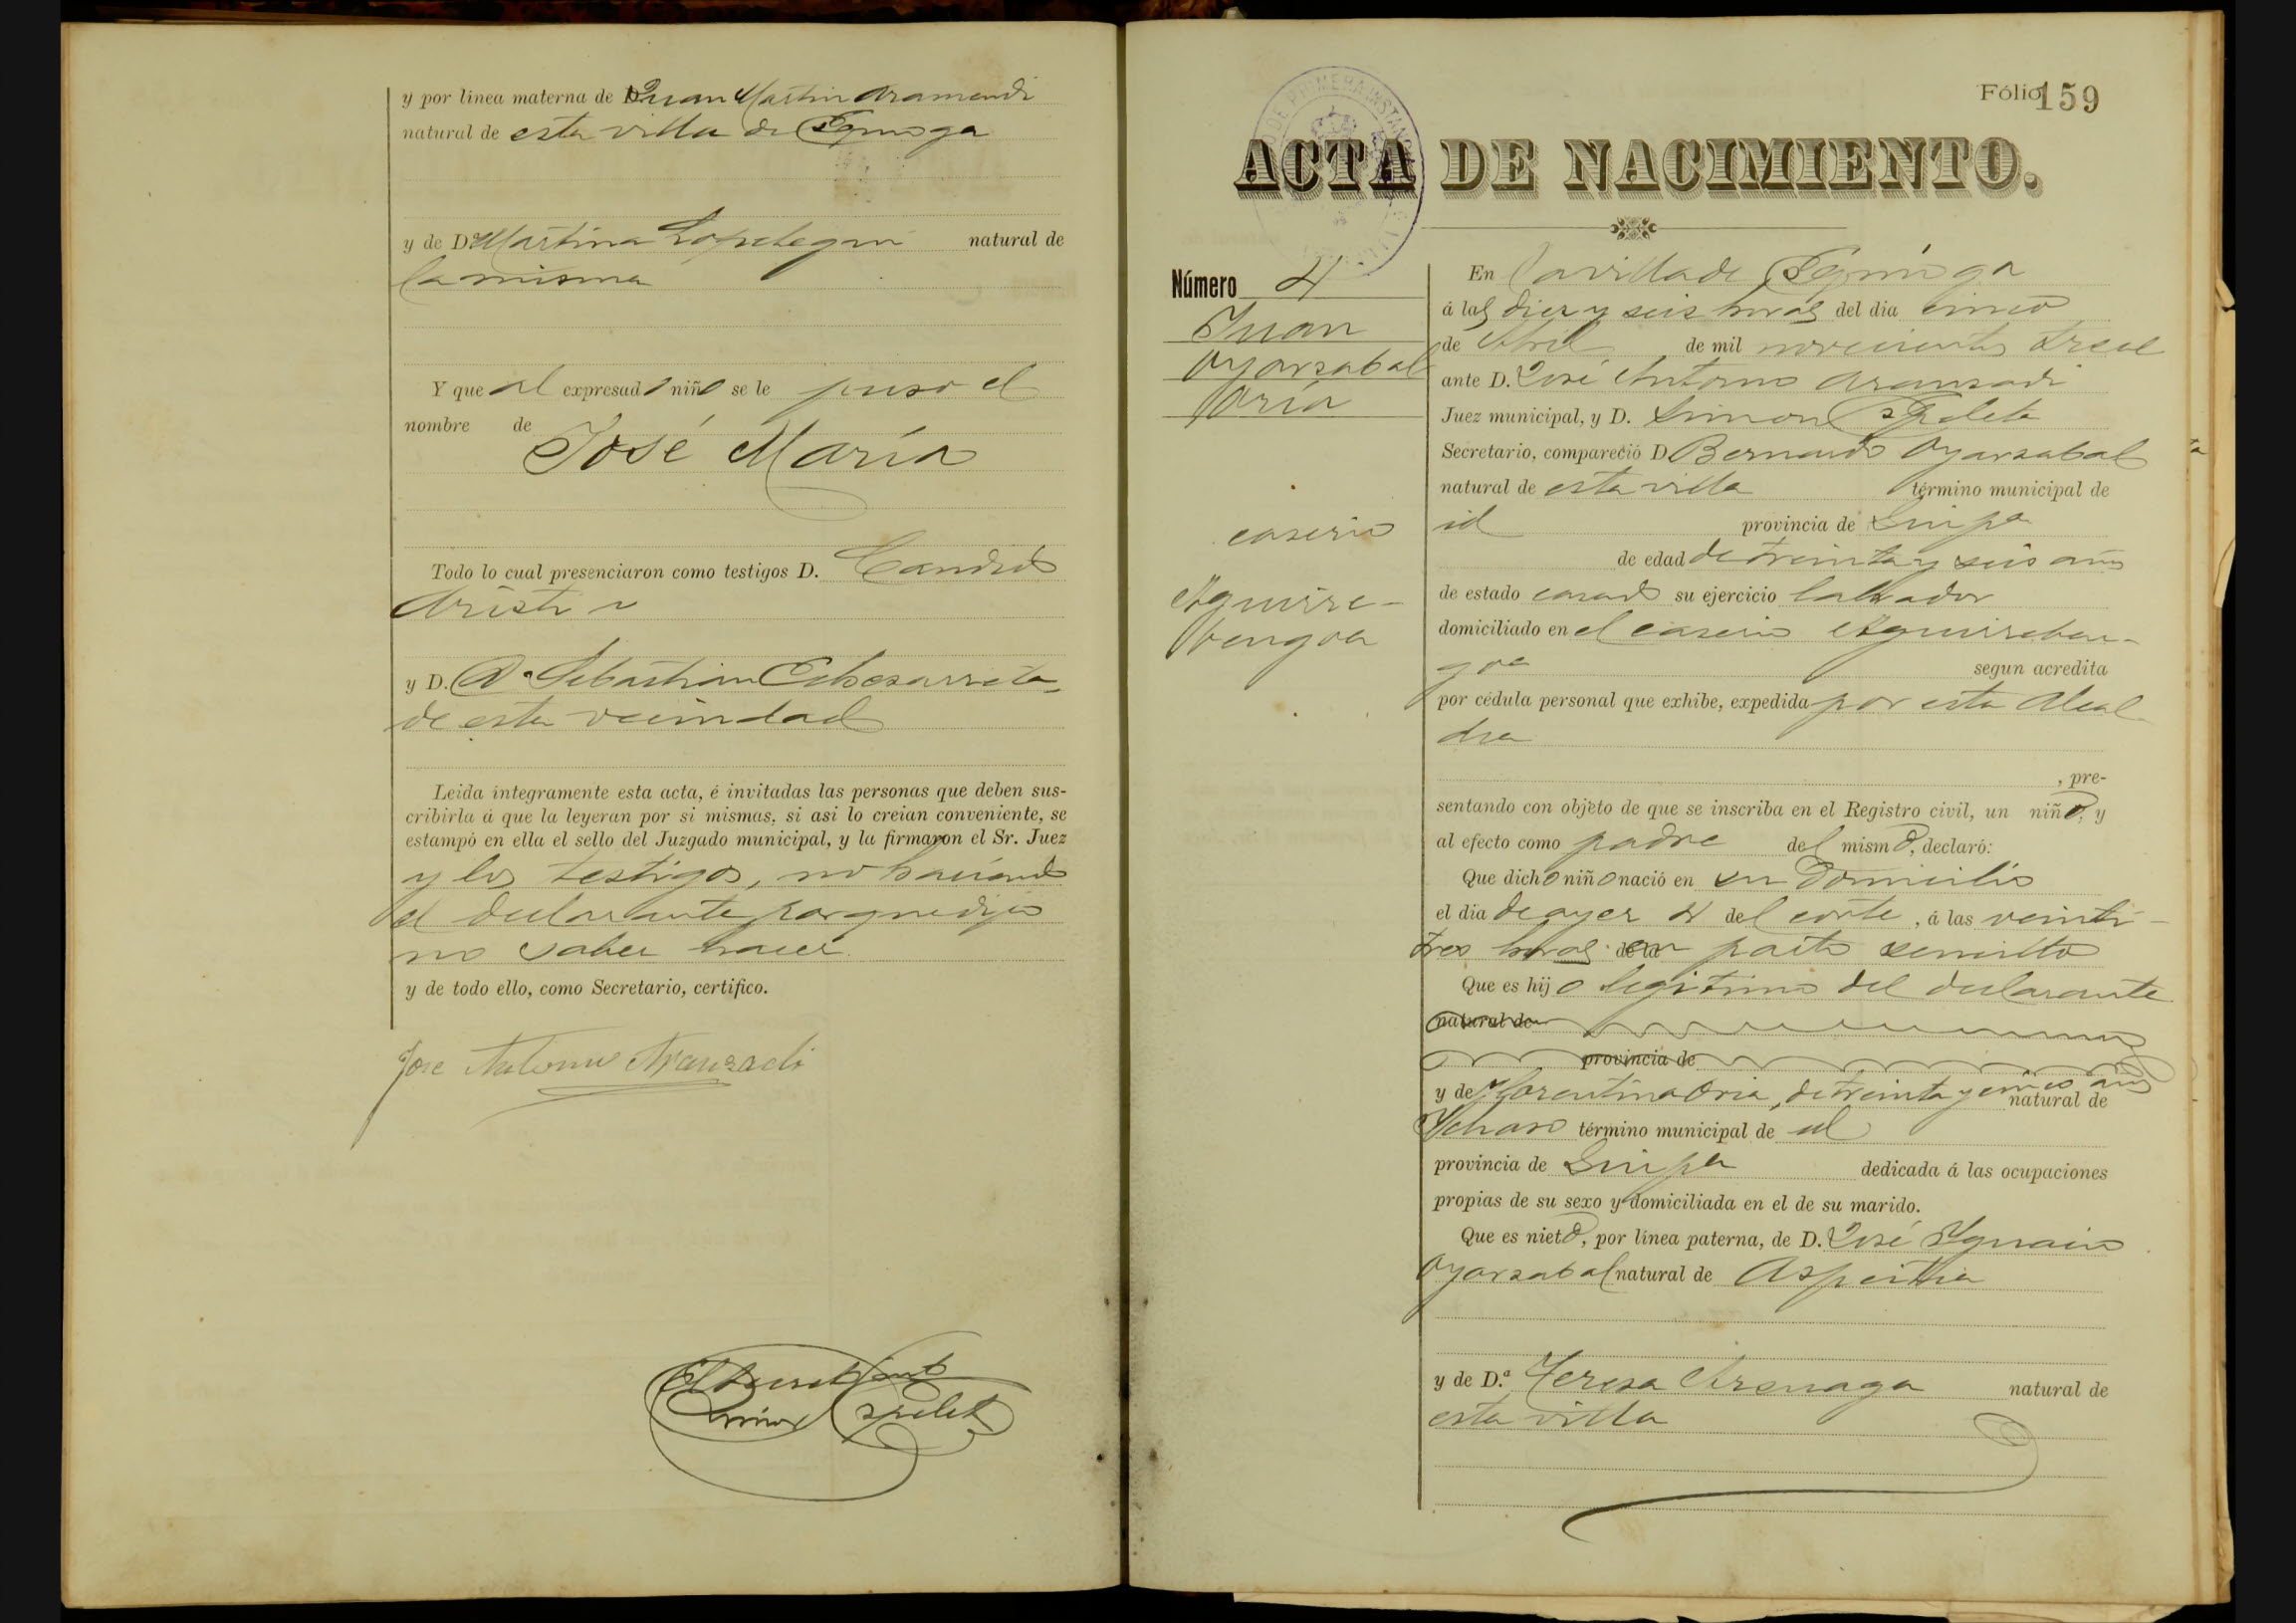 y por linea materna de Juan Martin Aramendi
natural de esta villa de Ezquioga
y de Dª Martina Lopetegui natural de
la misma
Y que al expresado niño se le puso el
nombre de
José María
Todo lo cual presenciaron como testigos D. Candido
Aristi
y D. Sebastian Echezarreta,
de esta vecindad
Leida íntegramente esta acta, é invitadas las personas que deben sus-
cribirla á que la leyeran por si mismas, si asi lo creian conveniente, se
estampó en ella el sello del Juzgado municipal, y la firmaron el Sr. Juez
y los testigos, no haciendo
el declarante porque dijo
no saber hacer.
y de todo ello, como Secretario, certifico.
Jose Antonio Aranzadi
Fólio 159
ACTA DE NACIMIENTO.
Número 4
Juan
Oyarzabal
Oria
caserio
Aguirre-
bengoa
En la villa de Ezquioga
á las diez y seis horas del dia cinco
de Abril de mil novecientos trece
ante D. José Antonio Aranzadi
Juez municipal, y D. Simon
Secretario, compareció D Bernardo Oyarzabal
natural de esta villa término municipal de
id provincia de Guipa
de edad de treinta y seis años
de estado casado su ejercicio labrador
domiciliado en el caserio Aguirreben-
goa segun acredita
por cédula personal que exhibe, expedida por esta Alcal-
dia
, pre-
sentando con objeto de que se inscriba en el Registro civil, un niño, y
al efecto como padre del mismo, declaró:
Que dicho niño nació en su domicilio
el dia de ayer 4 del corte, á las veinti-
tres horas de la en parto sencillo
Que es hijo legitimo del declarante
natural de
provincia de
y de Florentina Oria, de treinta y cinco años natural de
Ychaso término municipal de id
provincia de Guipa dedicada á las ocupaciones
propias de su sexo y domiciliada en el de su marido.
Que es nieto, por linea paterna, de D. José Ygnacio
Oyarzabal natural de Aspeitia
y de D.ª Teresa Arsuaga natural de
esta villa